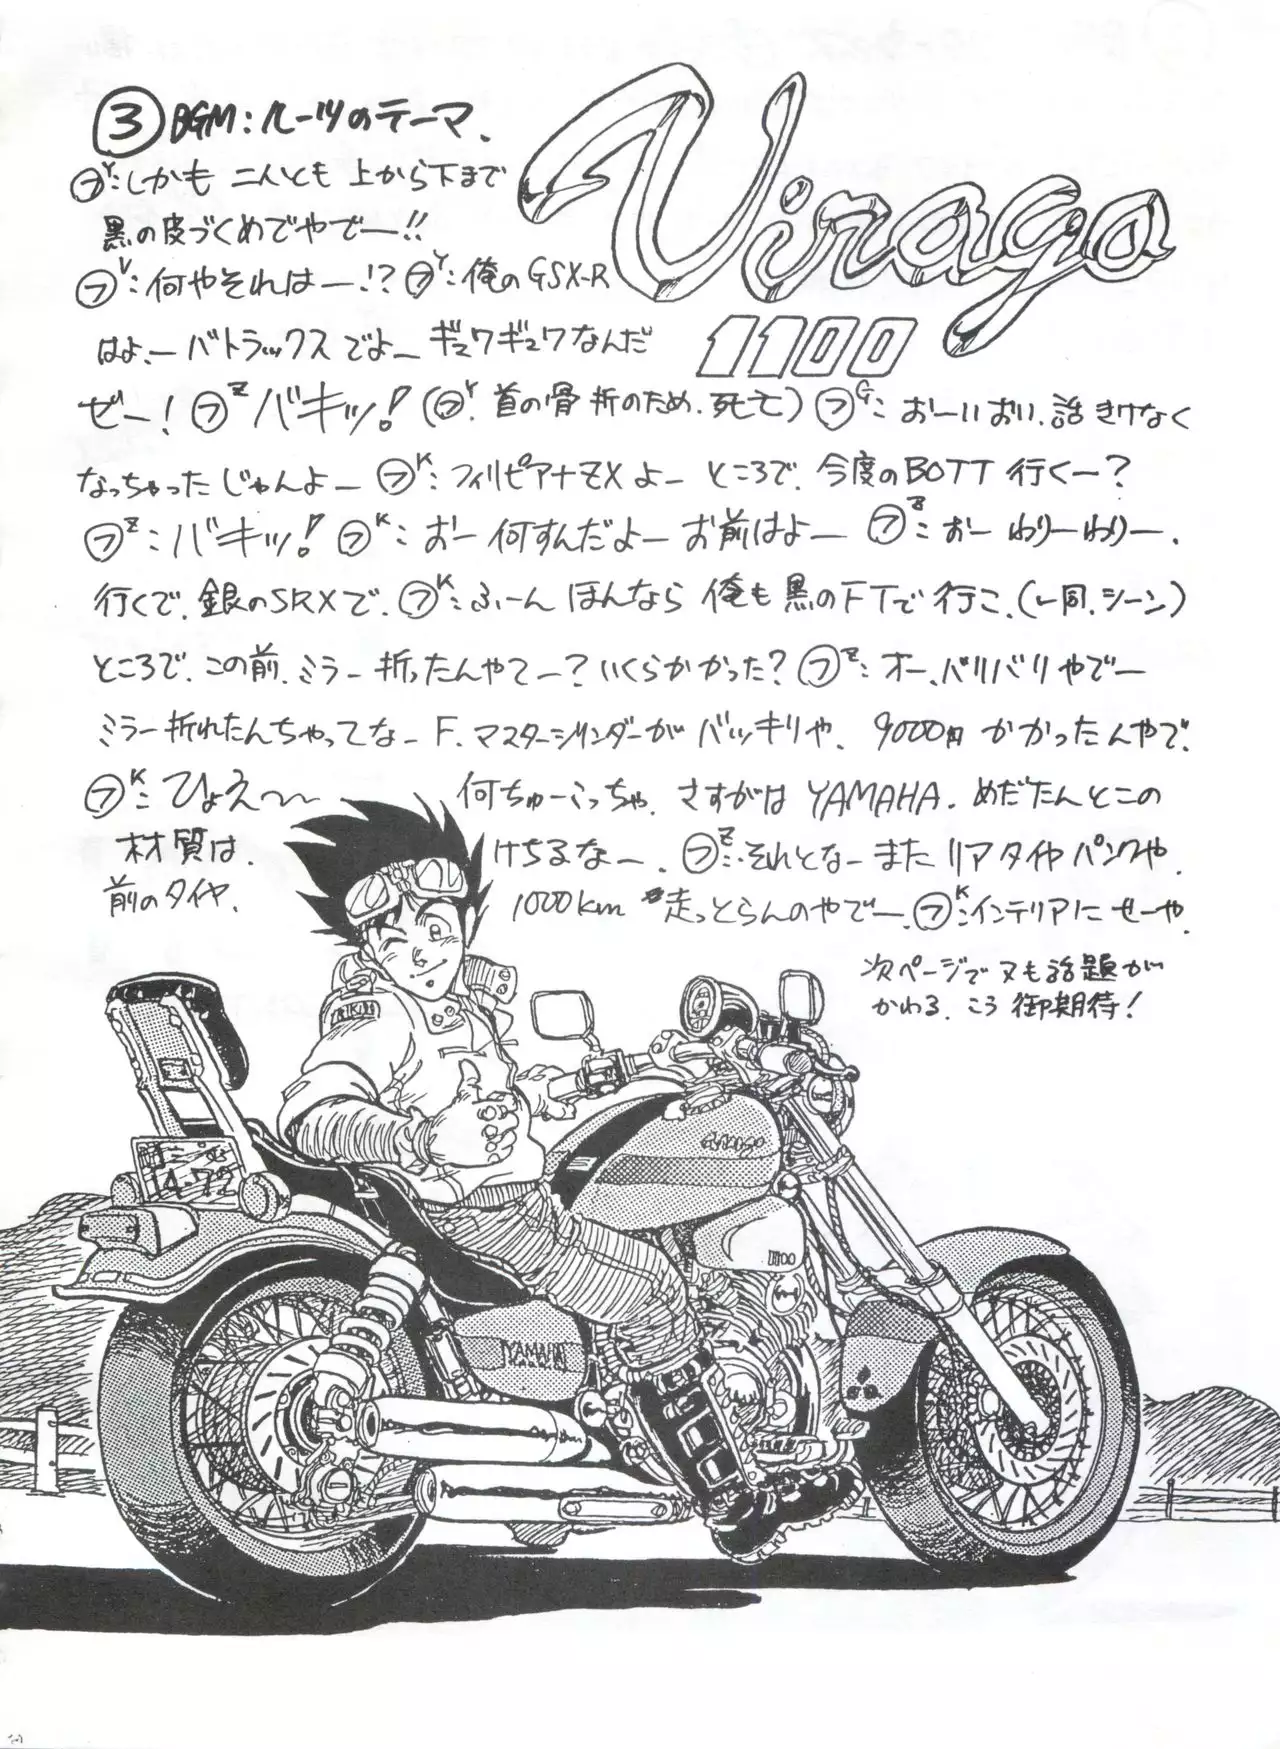 Virago
1100
③ BGM:ルーツのテーマ.
フY:しかも 二人とも 上から下まで
黒の皮づくめでやでー!!
フY:何やそれはー!? フY:俺のGSX-R
はよ.ーバトラックス でよー ギュワギュワなんだ
ぜー! フZ バキッ! (フY.首の骨 折のため.死亡) フG:おーいおい.話きけなく
なっちゃったじゃんよー フK:フィリピアナZXよー ところで.今度のBOTT 行くー?
フZ:バキッ! フK:おー何すんだよー お前はよー フZ:おー わりーわりー.
行くで.銀のSRXで. フK:ふーん ほんなら 俺も黒のFTで行こ.(と同.シーン)
ところで.この前.ミラー 折ったんやてー?いくらかかった? フZ:オー.バリバリやでー
ミラー折れたんちゃってなー F.マスターシリンダーがバッキリや. 9000円かかったんやで.
フK:ひょえ〜〜 何ちゅーこっちゃ. さすがは YAMAHA. めだたんとこの
材質は. けちるなー. フZ:それとなー また リアタイヤ パンクや.
前のタイヤ. 1000km 走っとらんのやでー. フK:インテリアに せーや.
次ページでヌも話題が
かわる. こう御期待!
Virago
1100
YAMAHA
4-72